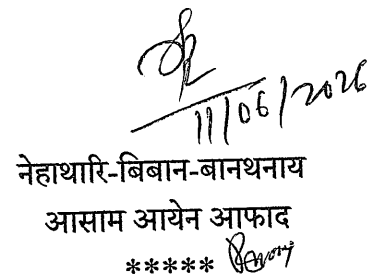 11/06/2026
नेहाथारि-बिबान-बानथनाय
आसाम आयेन आफाद
*****